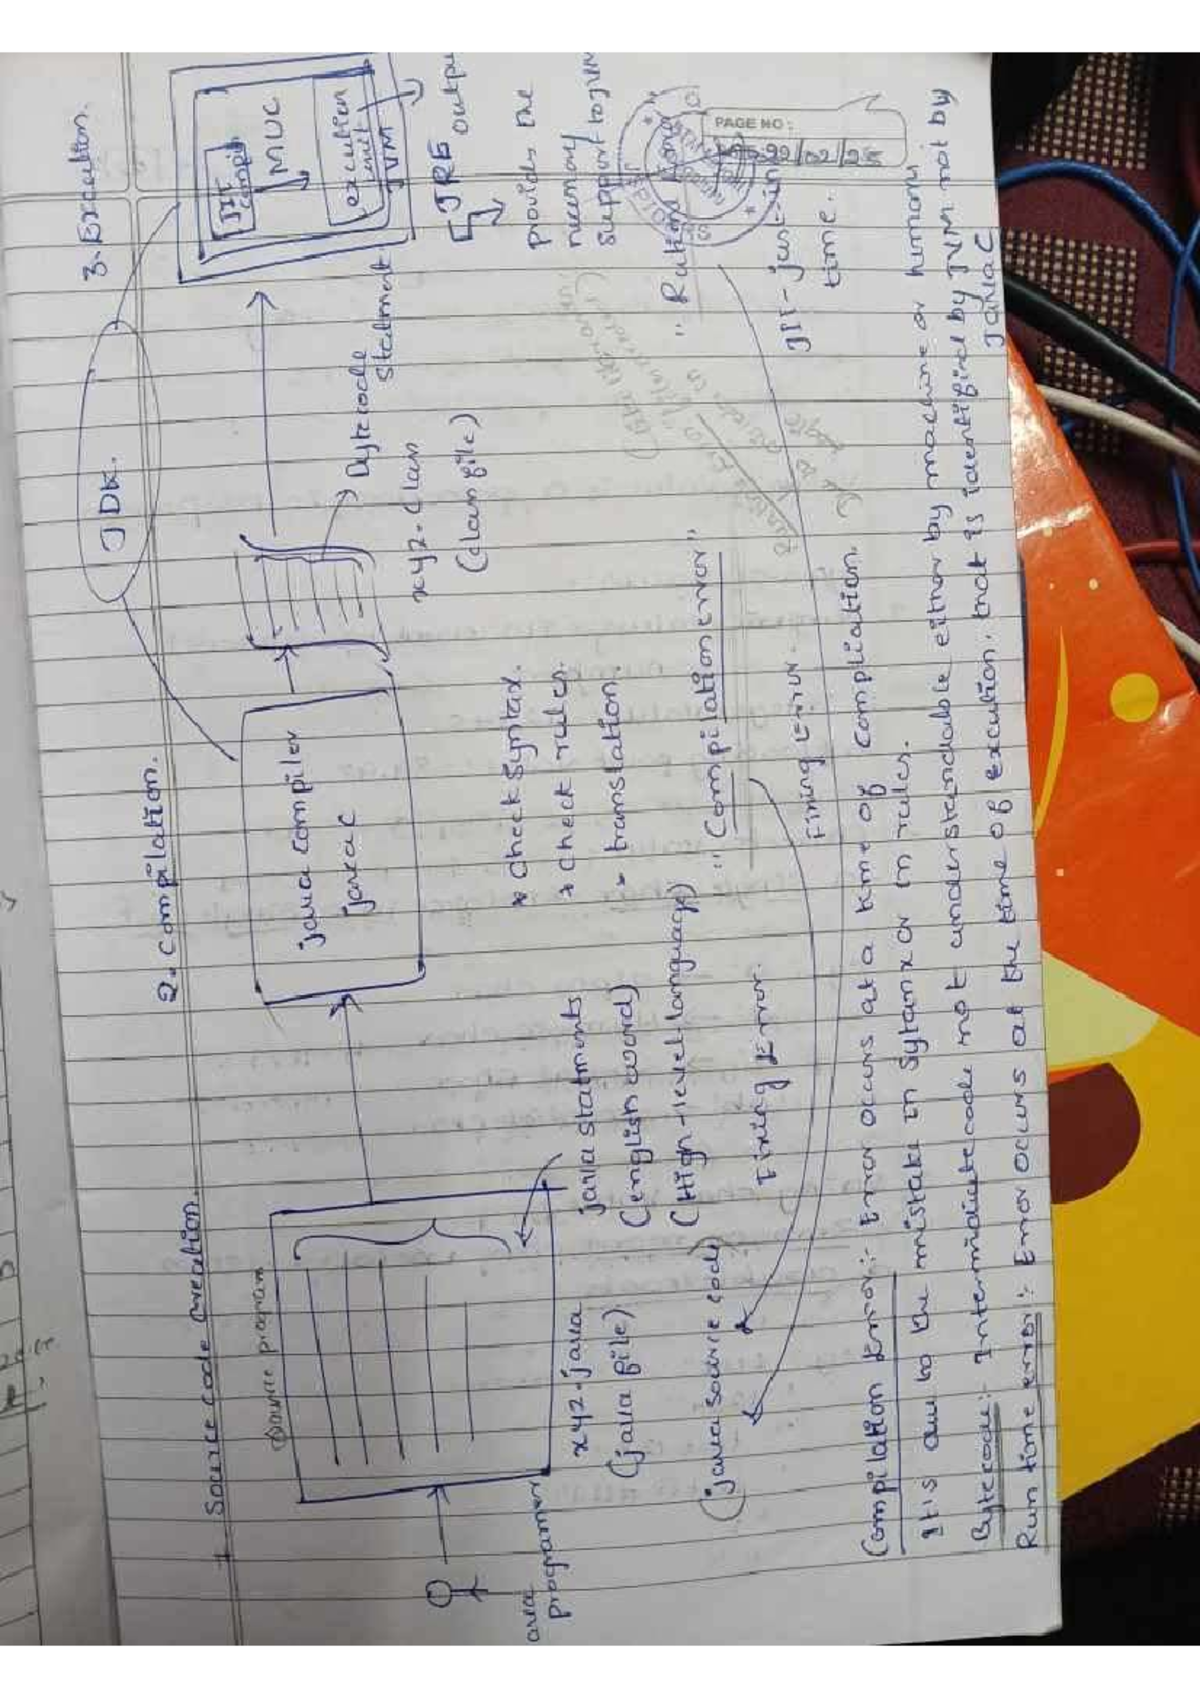 1. Source code creation.
2. Compilation.
3. Execution.
JDK.
Source program
java compiler
javac
JIT
compi
MUC
execution
unit
JVM
Bytecode
Statment
JRE output
xyz.java
(java file)
java programmer
java statments
(english word)
(High-level-language)
(java source code)
* check Syntax.
* check rules.
* translation.
xyz.class
(class file)
provides the
memory
support to
"Compilation error"
"Runtime
Fixing Error.
Fixing Error.
JIT - Just-in
time.
PAGE NO:
Compilation Error:- Error occurs at a time of compliation.
It is due to the mistake in Sytanx or in rules.
Bytecode:- Intermidiate code not understandable either by machine or humans
that is identified by JVM not by
javac
Run time error:- Error occurs at the time of excution.